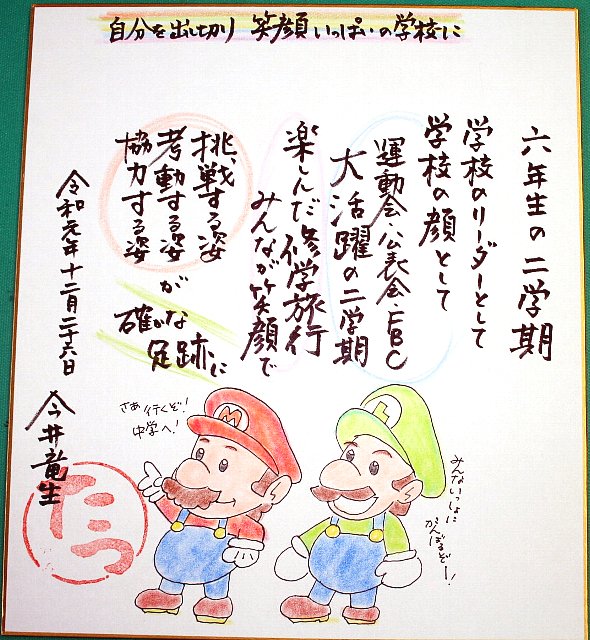 自分を出し切り 笑顔いっぱいの学校に
六年生の二学期
学校のリーダーとして
学校の顔として
運動会・公表会・FBC
大活躍の二学期
楽しんだ修学旅行
みんなが笑顔で
挑戦する姿
考動する姿
協力する姿
が
確かな
足跡に
令和元年十二月二十六日
今井竜生
たつ
さあ行くぞ!
中学へ!
M
L
みんないっしょに
がんばるぞー!